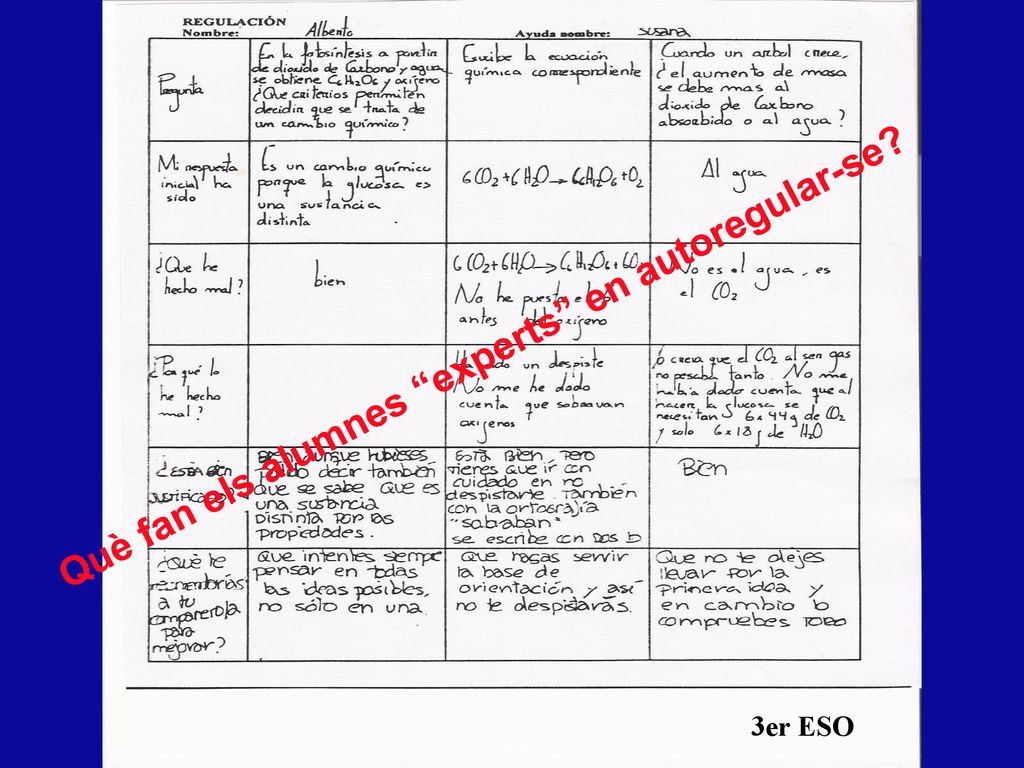 REGULACIÓN
Nombre: Alberto Ayuda nombre: Susana
Pregunta
En la fotosíntesis a partir
de dioxido de Carbono y agua
se obtiene C6H12O6 y oxígeno
¿Que criterios permiten
decidir que se trata de
un cambio químico?
Escribe la ecuación
química correspondiente
Cuando un arbol crece,
¿el aumento de masa
se debe mas al
dioxido de Carbono
absorbido o al agua?
Mi respuesta
inicial ha
sido
Es un cambio químico
porque la glucosa es
una sustancia
distinta.
6CO2+6H2O→C6H12O6+O2
Al agua
¿Que he
hecho mal?
bien
6CO2+6H2O→C6H12O6+6O2
No he puesto el 6
antes del oxigeno
No es el agua, es
el CO2
¿Por qué lo
he hecho
mal?
un despiste
No me he dado
cuenta que sobravan
oxigenos
creia que el CO2 al ser gas
no pesaba tanto. No me
habia dado cuenta que al
hacer la glucosa se
necesitan 6x44g de CO2
y solo 6x18g de H2O
¿Está bien
justificado?
aunque hubieses
podido decir también
que se sabe que es
una sustancia
distinta por las
propiedades.
Está bien, pero
tienes que ir con
cuidado en no
despistarte. También
con la ortografía
"sobraban"
se escribe con dos b
Bien
¿Qué le
recomendarías
a tu
compañero/a
para
mejorar?
Que intentes siempre
pensar en todas
las ideas posibles,
no sólo en una.
Que hagas servir
la base de
orientación y así
no te despistarás.
Que no te dejes
llevar por la
primera idea y
en cambio lo
compruebes todo
Què fan els alumnes “experts” en autoregular-se?
3er ESO